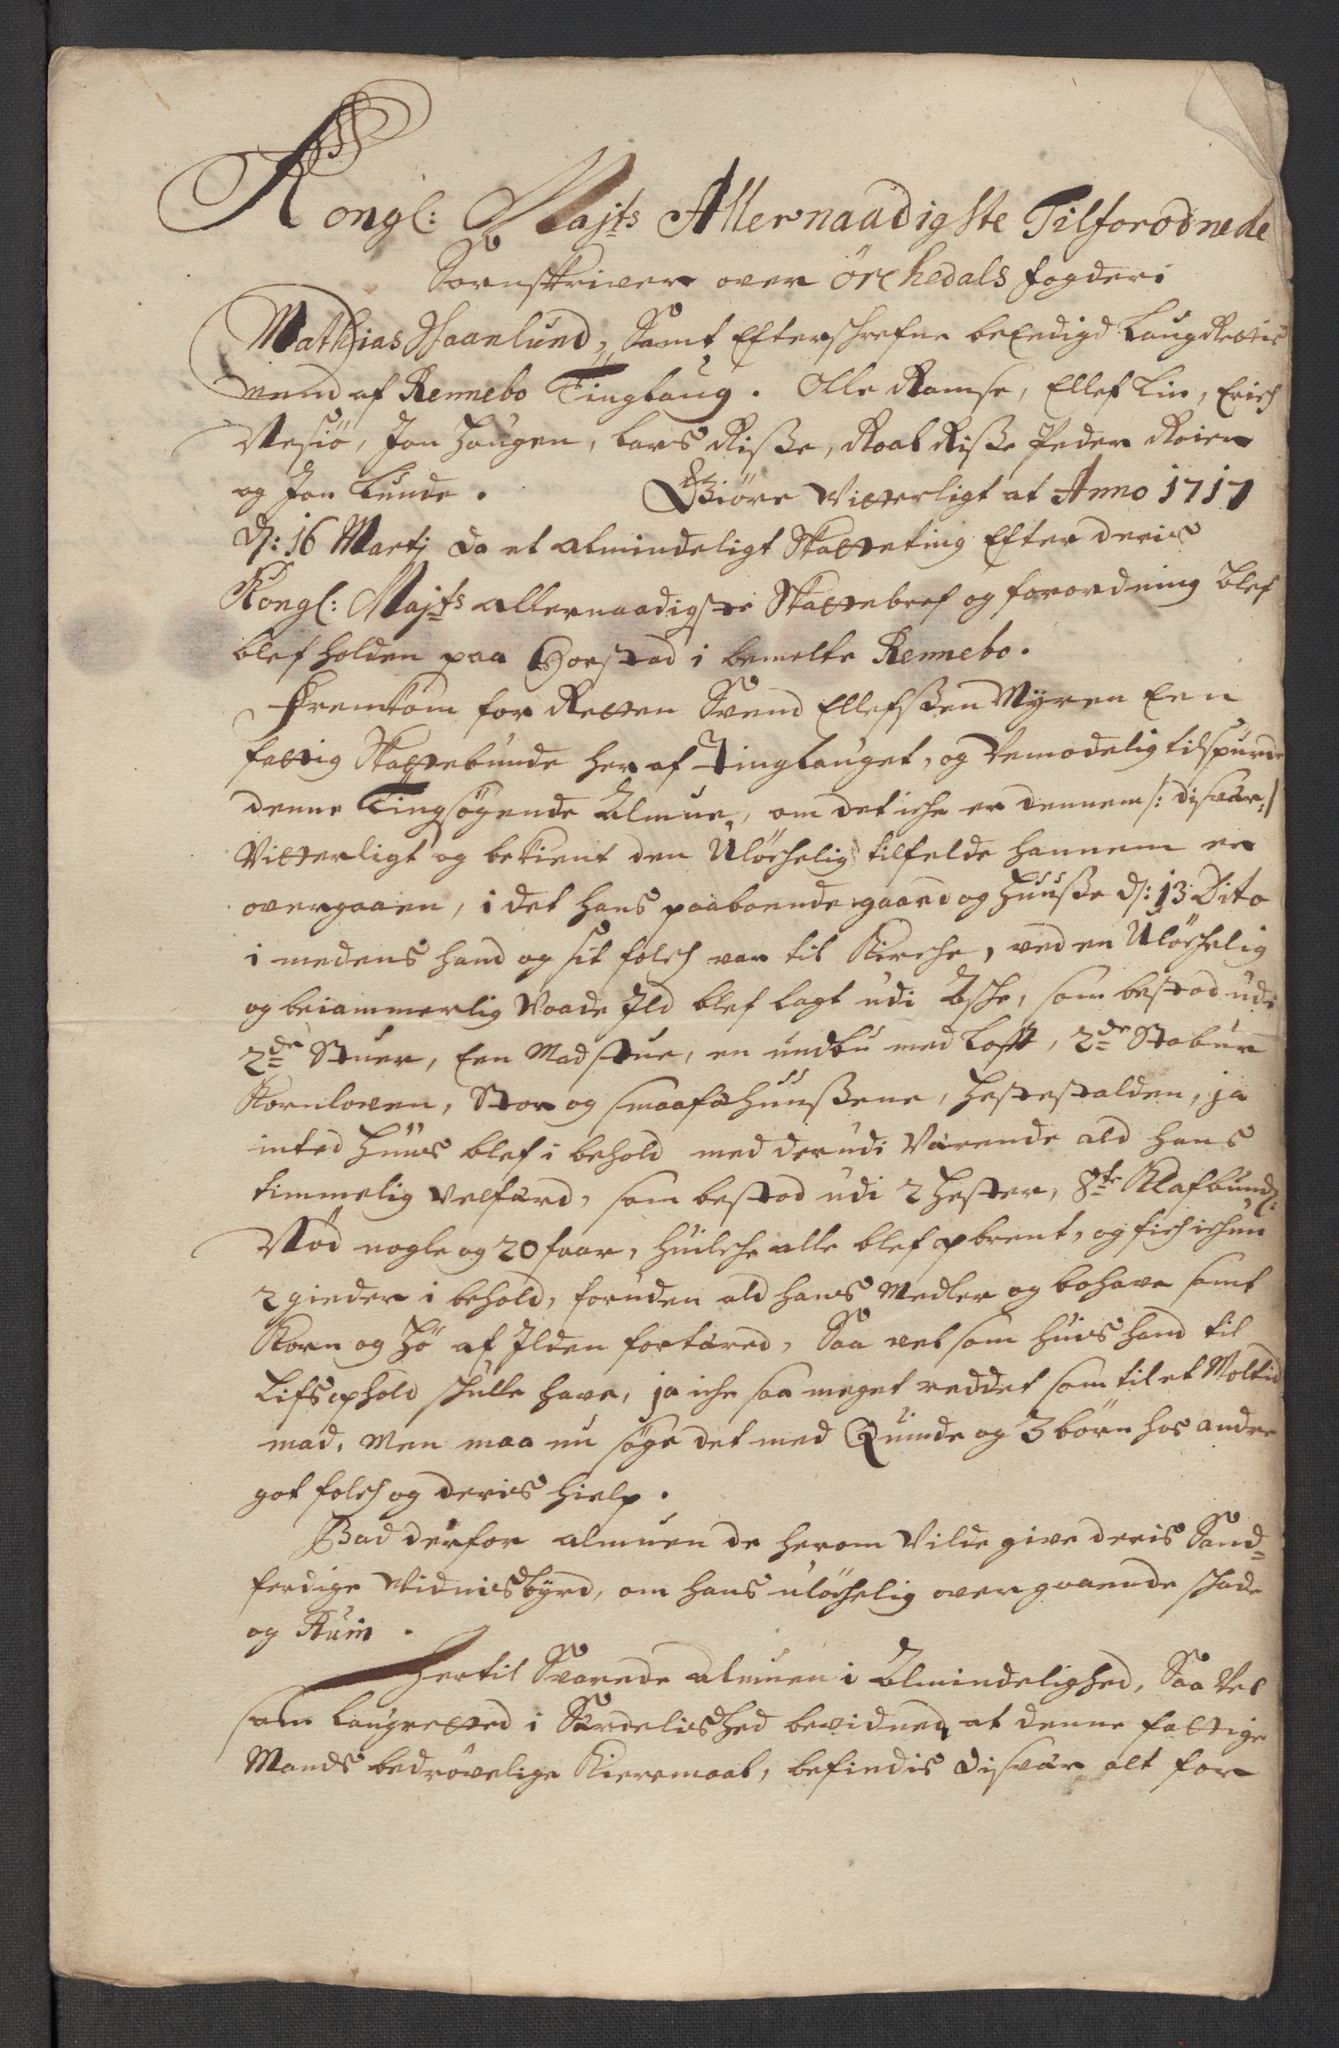 Kongl: Majts Allernaadigste Tilforodnede
Sorenskriver over Örchedals fogderi
Mathias Haanlund, Samt Efterschrefne beEedigd LaugRettis
mend af Rennebo Tinglaug. Olle Ramse, Ellef Lin, Erich
Nesiö, Jon Haugen, Lars Riſse, Roal Riſse Peder Koien
og Jon Lunde. Giöre Vitterligt at Anno 1717
d: 16 Martj da et almindeligt Skatteting Efter deris
Kongl: Majts allernaadigste Skattebref og forordning blef
blef holden paa Horstad i bemelte Rennebo.
Fremkom for Retten Svend Ellefſsen Myren Een
fattig Skattebunde her af Tinglauget, og Vemodelig tilspurde
denne Tingsögende Almue, om det iche er dennem /: disvær :/
Vitterligt og bekient den Ulöchelig tilfelde hannem er
overgaaen, i det hans paaboende gaard og Huuſse d: 13 Dito
i medens hand og sit folch var til Kirche, ved en Ulöchelig
og beiammerlig Vaade Ild blef lagt udi Asche, som bestod udi
2de Stuer, Een Madstue, en undbu med Loft, 2de Stabur
Kornloven, Stor og smaafæhuuſsene, Hestestalden, ja
inted Huus blef i behold med derudi Værende ald hans
timmelig Velfærd, som bestod udi 2 Hester, 8te Klafbund:
Nöd nogle og 20 faar, huilche alle blef opbrent, og fich ichun
2 gieder i behold, foruden ald hans Medler og bohave samt
Korn og Hö af Ilden fortæred, Saa vel som huis hand til
Lifs ophold schulle have, ja iche saa meget reddet som til et Moltid
mad, Men maa nu söge det med Quinde og 3 börn hos andre
got folch og deris hielp.
Bad derfor almuen de herom Vilde give deris Sand-
ferdige Vidnisbyrd, om hans ulöchelig overgaaende schade
og Ruin.
Hertil Svarede almuen i Almindelighed, Saa Vel
som laugretted i Særdelished bevidned, at denne fattige
Mands bedrövelige Kieremaal, befindis disvær alt for